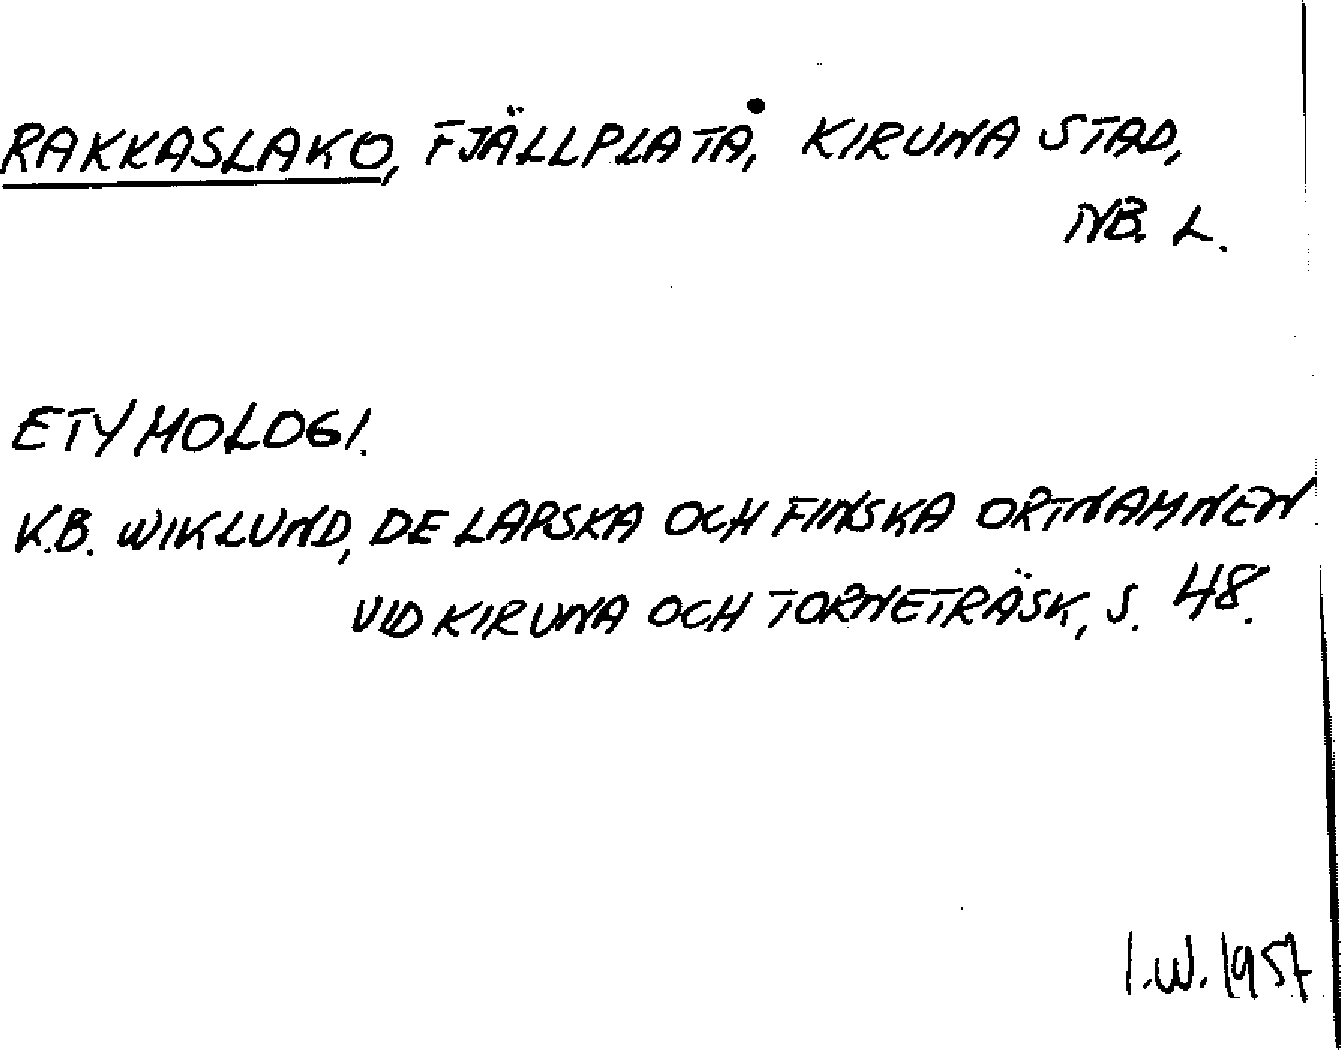 RAKKASLAKO, FJÄLLPLATÅ, KIRUNA STAD,
NB. L.
ETYMOLOGI.
K.B. WIKLUND, DE LAPSKA OCH FINSKA ORTNAMNEN
VID KIRUNA OCH TORNETRÄSK, S. 48.
I.W. 1957